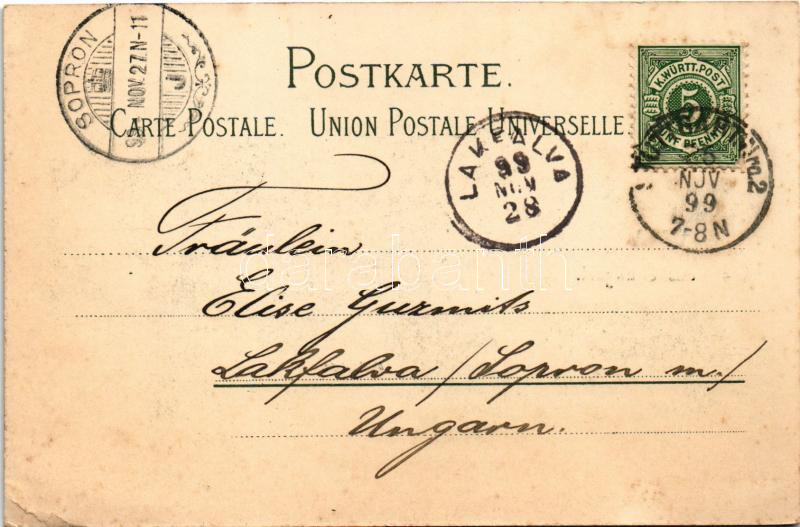 SOPRON
NOV. 27. N-11
J
POSTKARTE.
CARTE POSTALE. UNION POSTALE UNIVERSELLE.
K. WÜRTT. POST
5
FÜNF PFENNIG
No. 2
NOV
99
7-8 N
LAKFALVA
99
NOV
28
Fräulein
Elise Guzmits
Lakfalva / Sopron m./
Ungarn.
darabanth